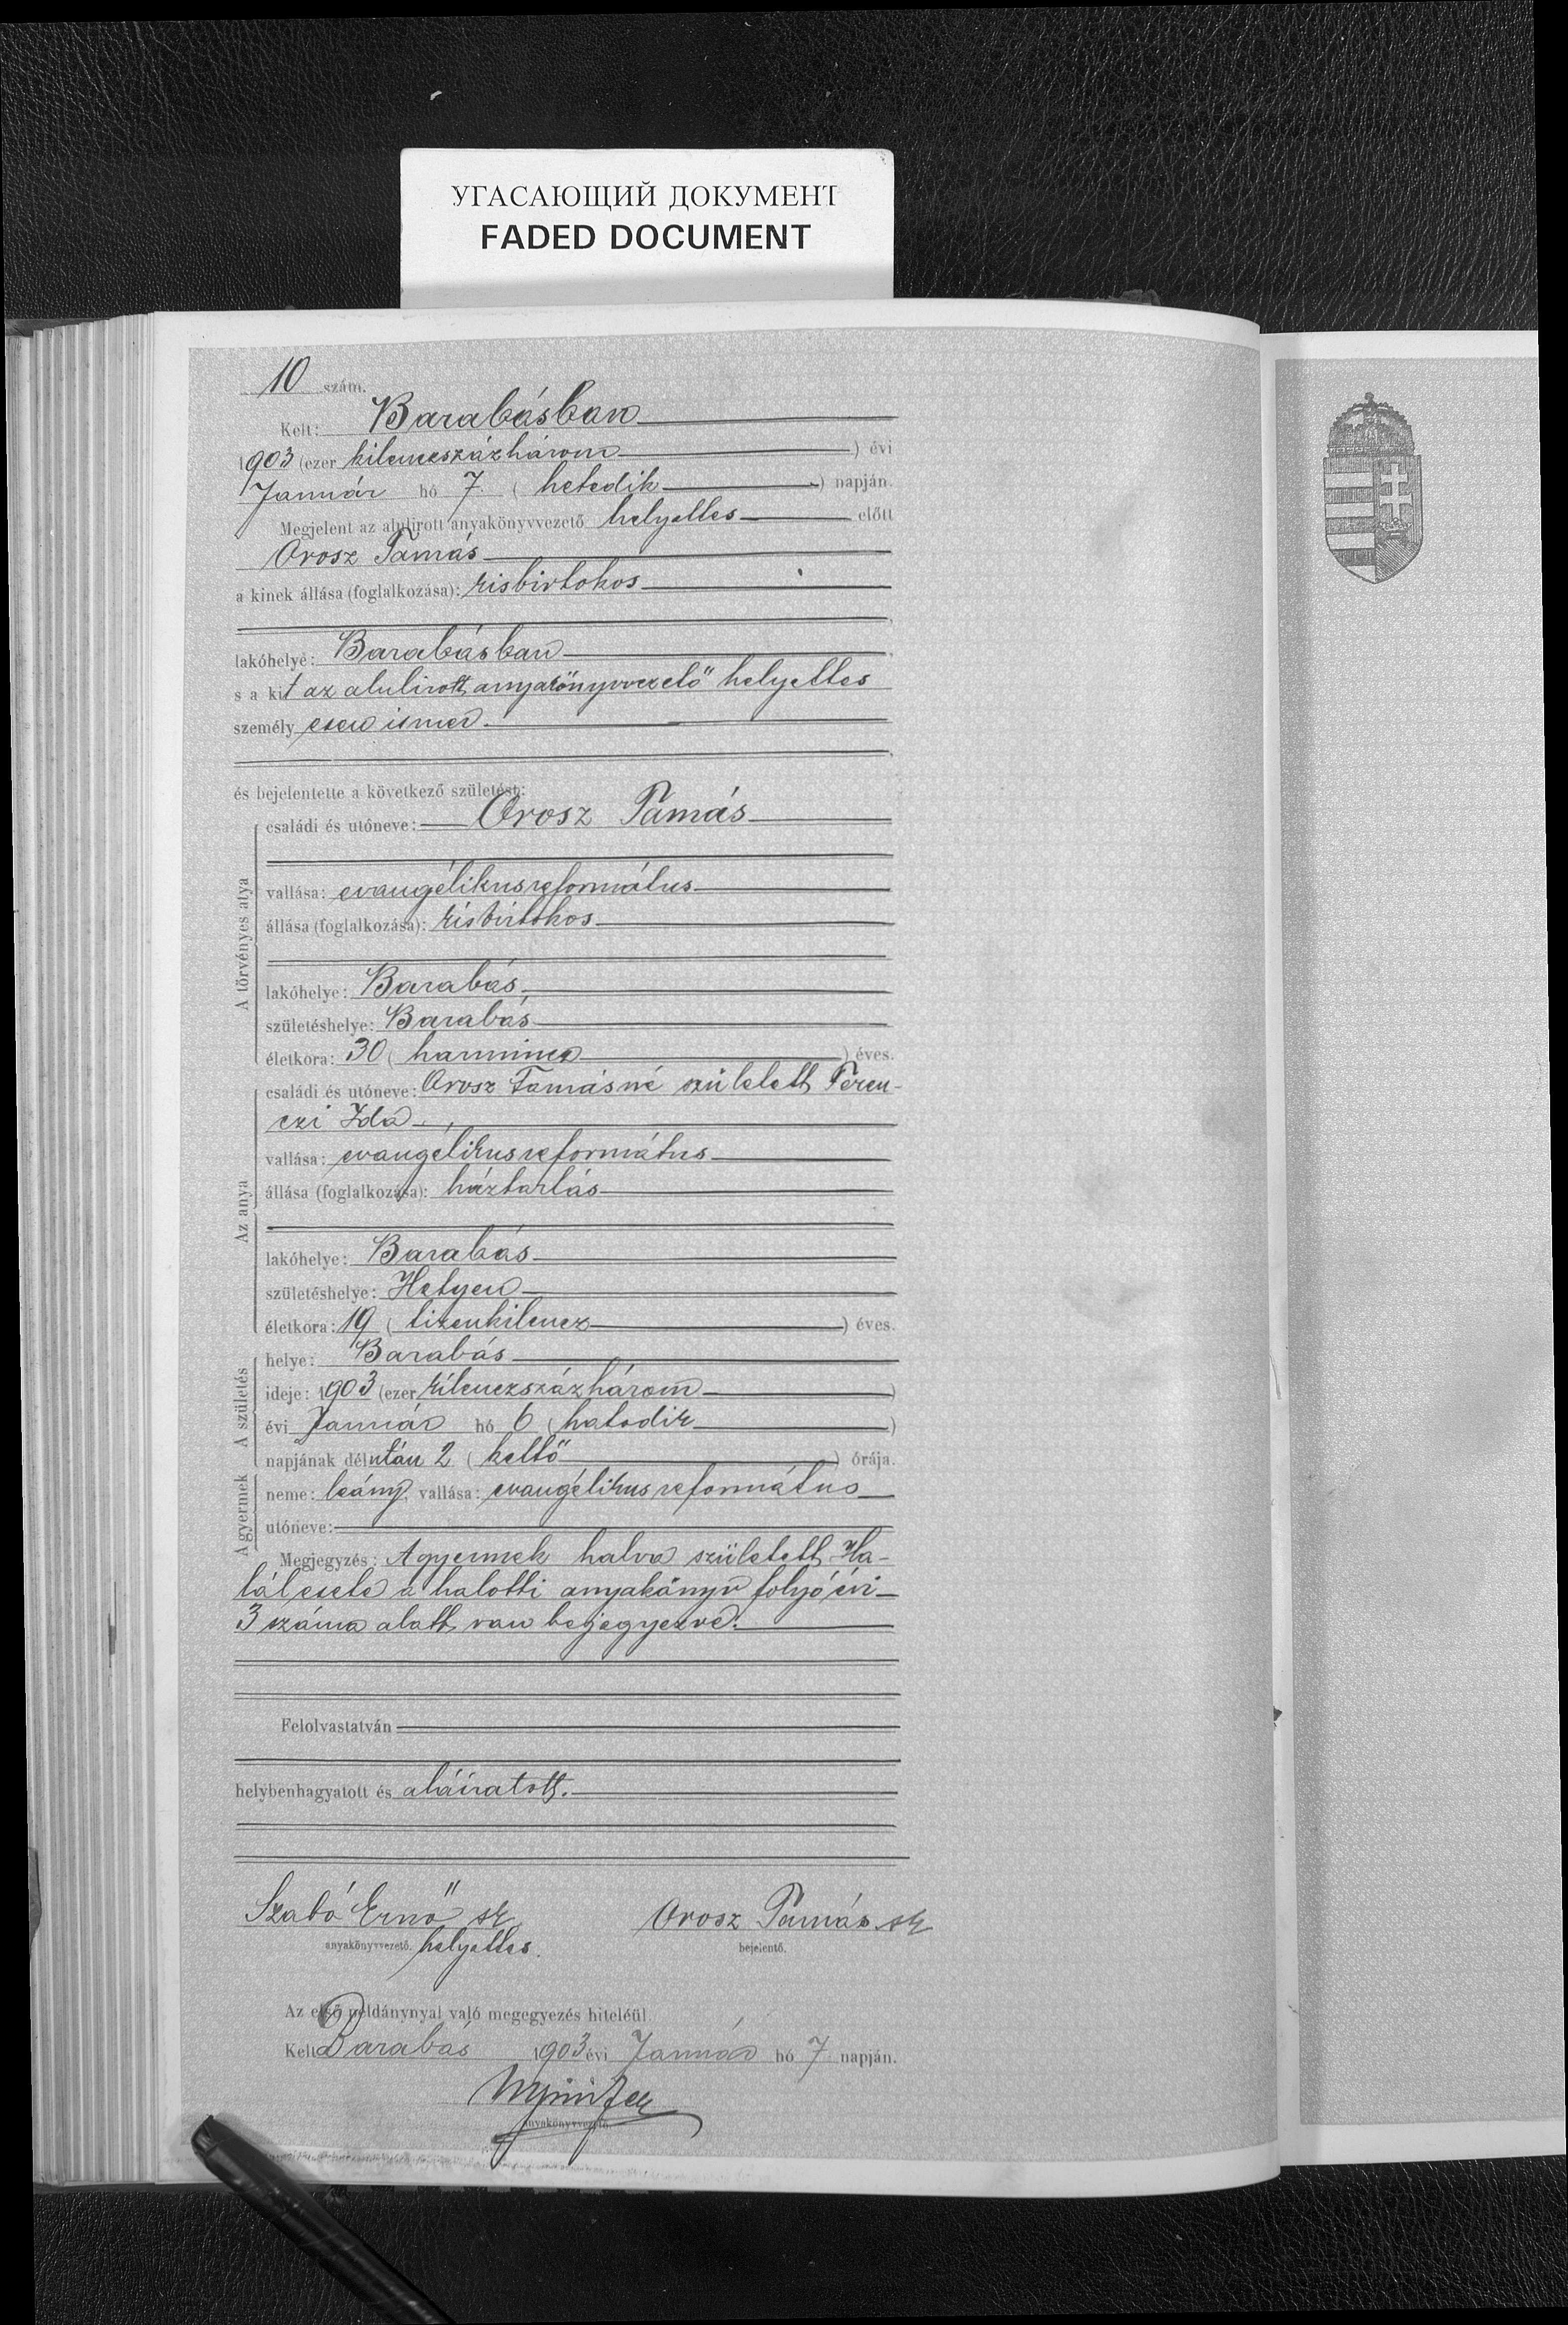 УГАСАЮЩИЙ ДОКУМЕНТ
FADED DOCUMENT
10 szám.
Kelt: Barabásban
1903 (ezer kilenczszázhárom ) évi
Január hó 7. ( hetedik ) napján.
Megjelent az alulirott anyakönyvvezető helyettes előtt
Orosz Tamás
a kinek állása (foglalkozása): kisbirtokos
lakóhelye: Barabásban
s a kit az alulirott anyakönyvvezető helyettes
személyesen ismer.
és bejelentette a következő születést:
A törvényes atya
családi és utóneve: Orosz Tamás
vallása: evangélikus református
állása (foglalkozása): kisbirtokos
lakóhelye: Barabás
születéshelye: Barabás
életkora: 30 ( harmincz ) éves.
Az anya
családi és utóneve: Orosz Tamásné született Feren-
czi Ida
vallása: evangélikus református
állása (foglalkozása): háztartás
lakóhelye: Barabás
születéshelye: Hetyen
életkora: 19 ( tizenkilencz ) éves.
A születés
helye: Barabás
ideje: 1903 (ezer kilenczszázhárom )
évi Január hó 6 ( hatodik )
napjának délután 2 ( kettő ) órája.
A gyermek
neme: leány, vallása: evangélikus református
utóneve:
Megjegyzés: A gyermek halva született Ha-
lálesete a halotti anyakönyv folyó évi
3 száma alatt van bejegyezve.
Felolvastatván
helybenhagyatott és aláíratott.
Szabó Ernő sk Orosz Tamás sk
anyakönyvvezető. helyettes. bejelentő.
Az első példánynyal való megegyezés hiteléül
Kelt Barabás 1903 évi Január hó 7 napján.
anyakönyvvezető.